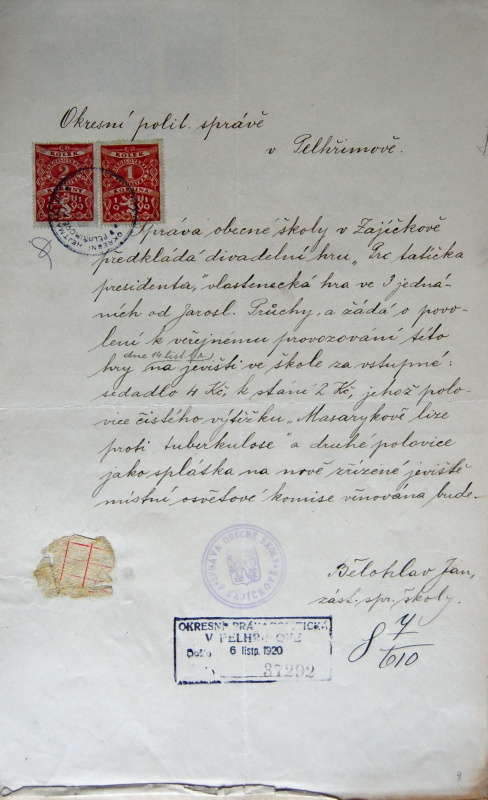 Okresní polit. správě
v Pelhřimově.
ČP
KOLEK
2
KORUNY
ČP
KOLEK
1
KORUNA
Správa obecné školy v Zajíčkově
předkládá divadelní hru „Pro tatíčka
presidenta," vlastenecká hra ve 3 jedná-
ních od Jarosl. Průchy, a žádá o povo-
lení k veřejnému provozování této
dne 14. list. t. r.
hry na jevišti ve škole za vstupné:
sedadlo 4 Kč, k stání 2 Kč, jehož polo-
vice čistého výtěžku „Masarykově lize
proti tuberkulose" a druhé polovice
jako splátka na nově zřízené jeviště
místní osvětové komise věnována bude.
SPRÁVA OBECNÉ ŠKOLY
ZAJÍČKOVĚ
Bělohlav Jan,
zást. spr. školy.
OKRESNÍ SPRÁVA POLITICKÁ
V PELHŘIMOVĚ
Došlo 6 listp. 1920
37292
8 7/610
4